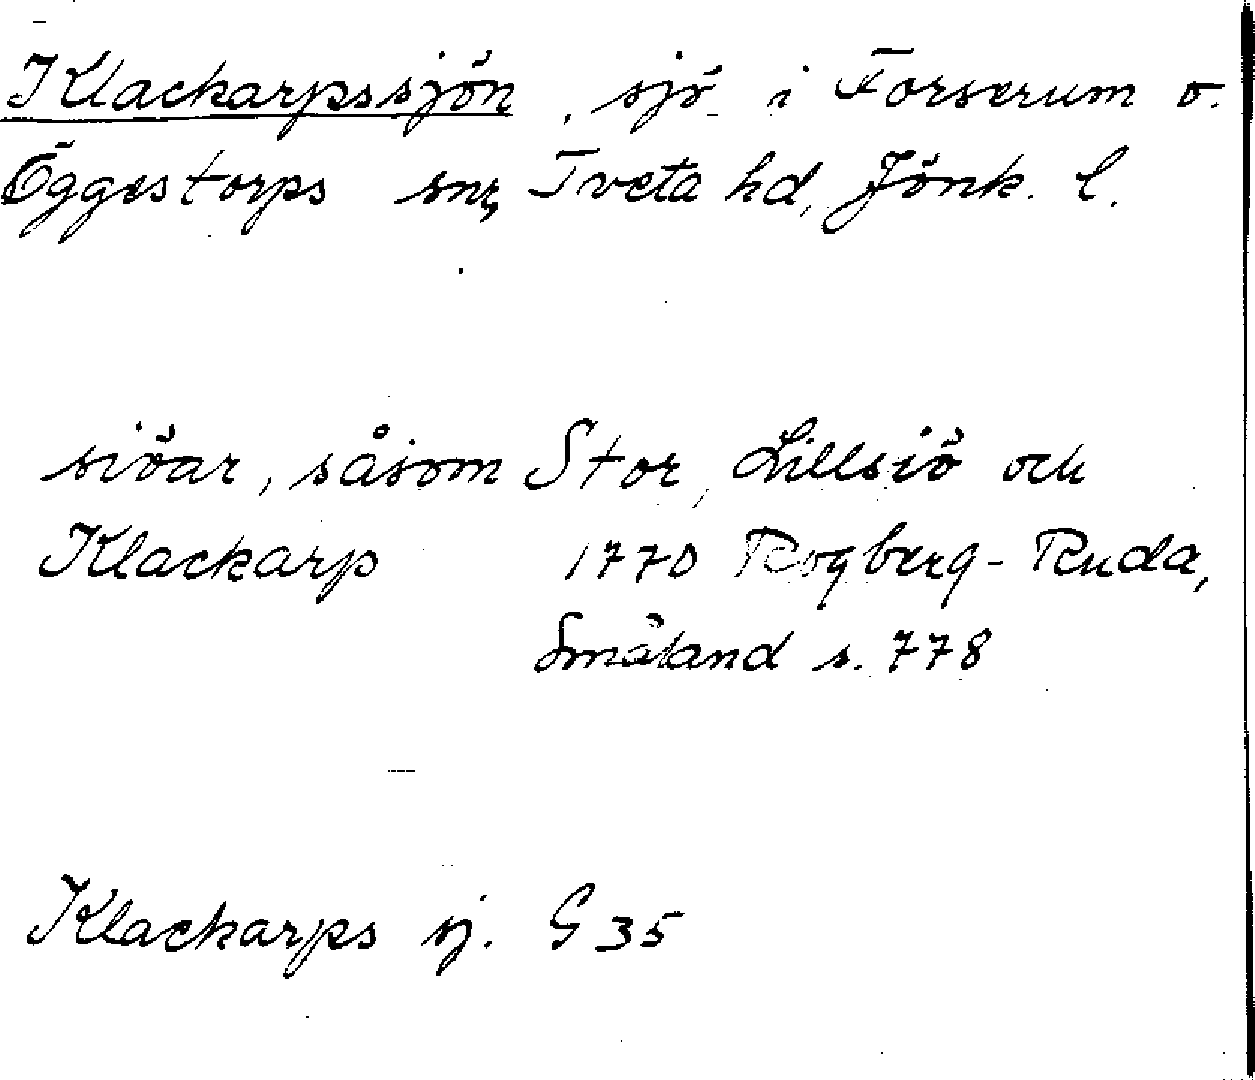 Klackarpssjön, sjö i Forserum o.
Öggestorps snr, Tveta hd, Jönk. l.
siöar, såsom Stor, Lillsiö och
Klackarp 1770 Rogberg-Ruda,
Småland s. 778
Klackarps sj. G 35